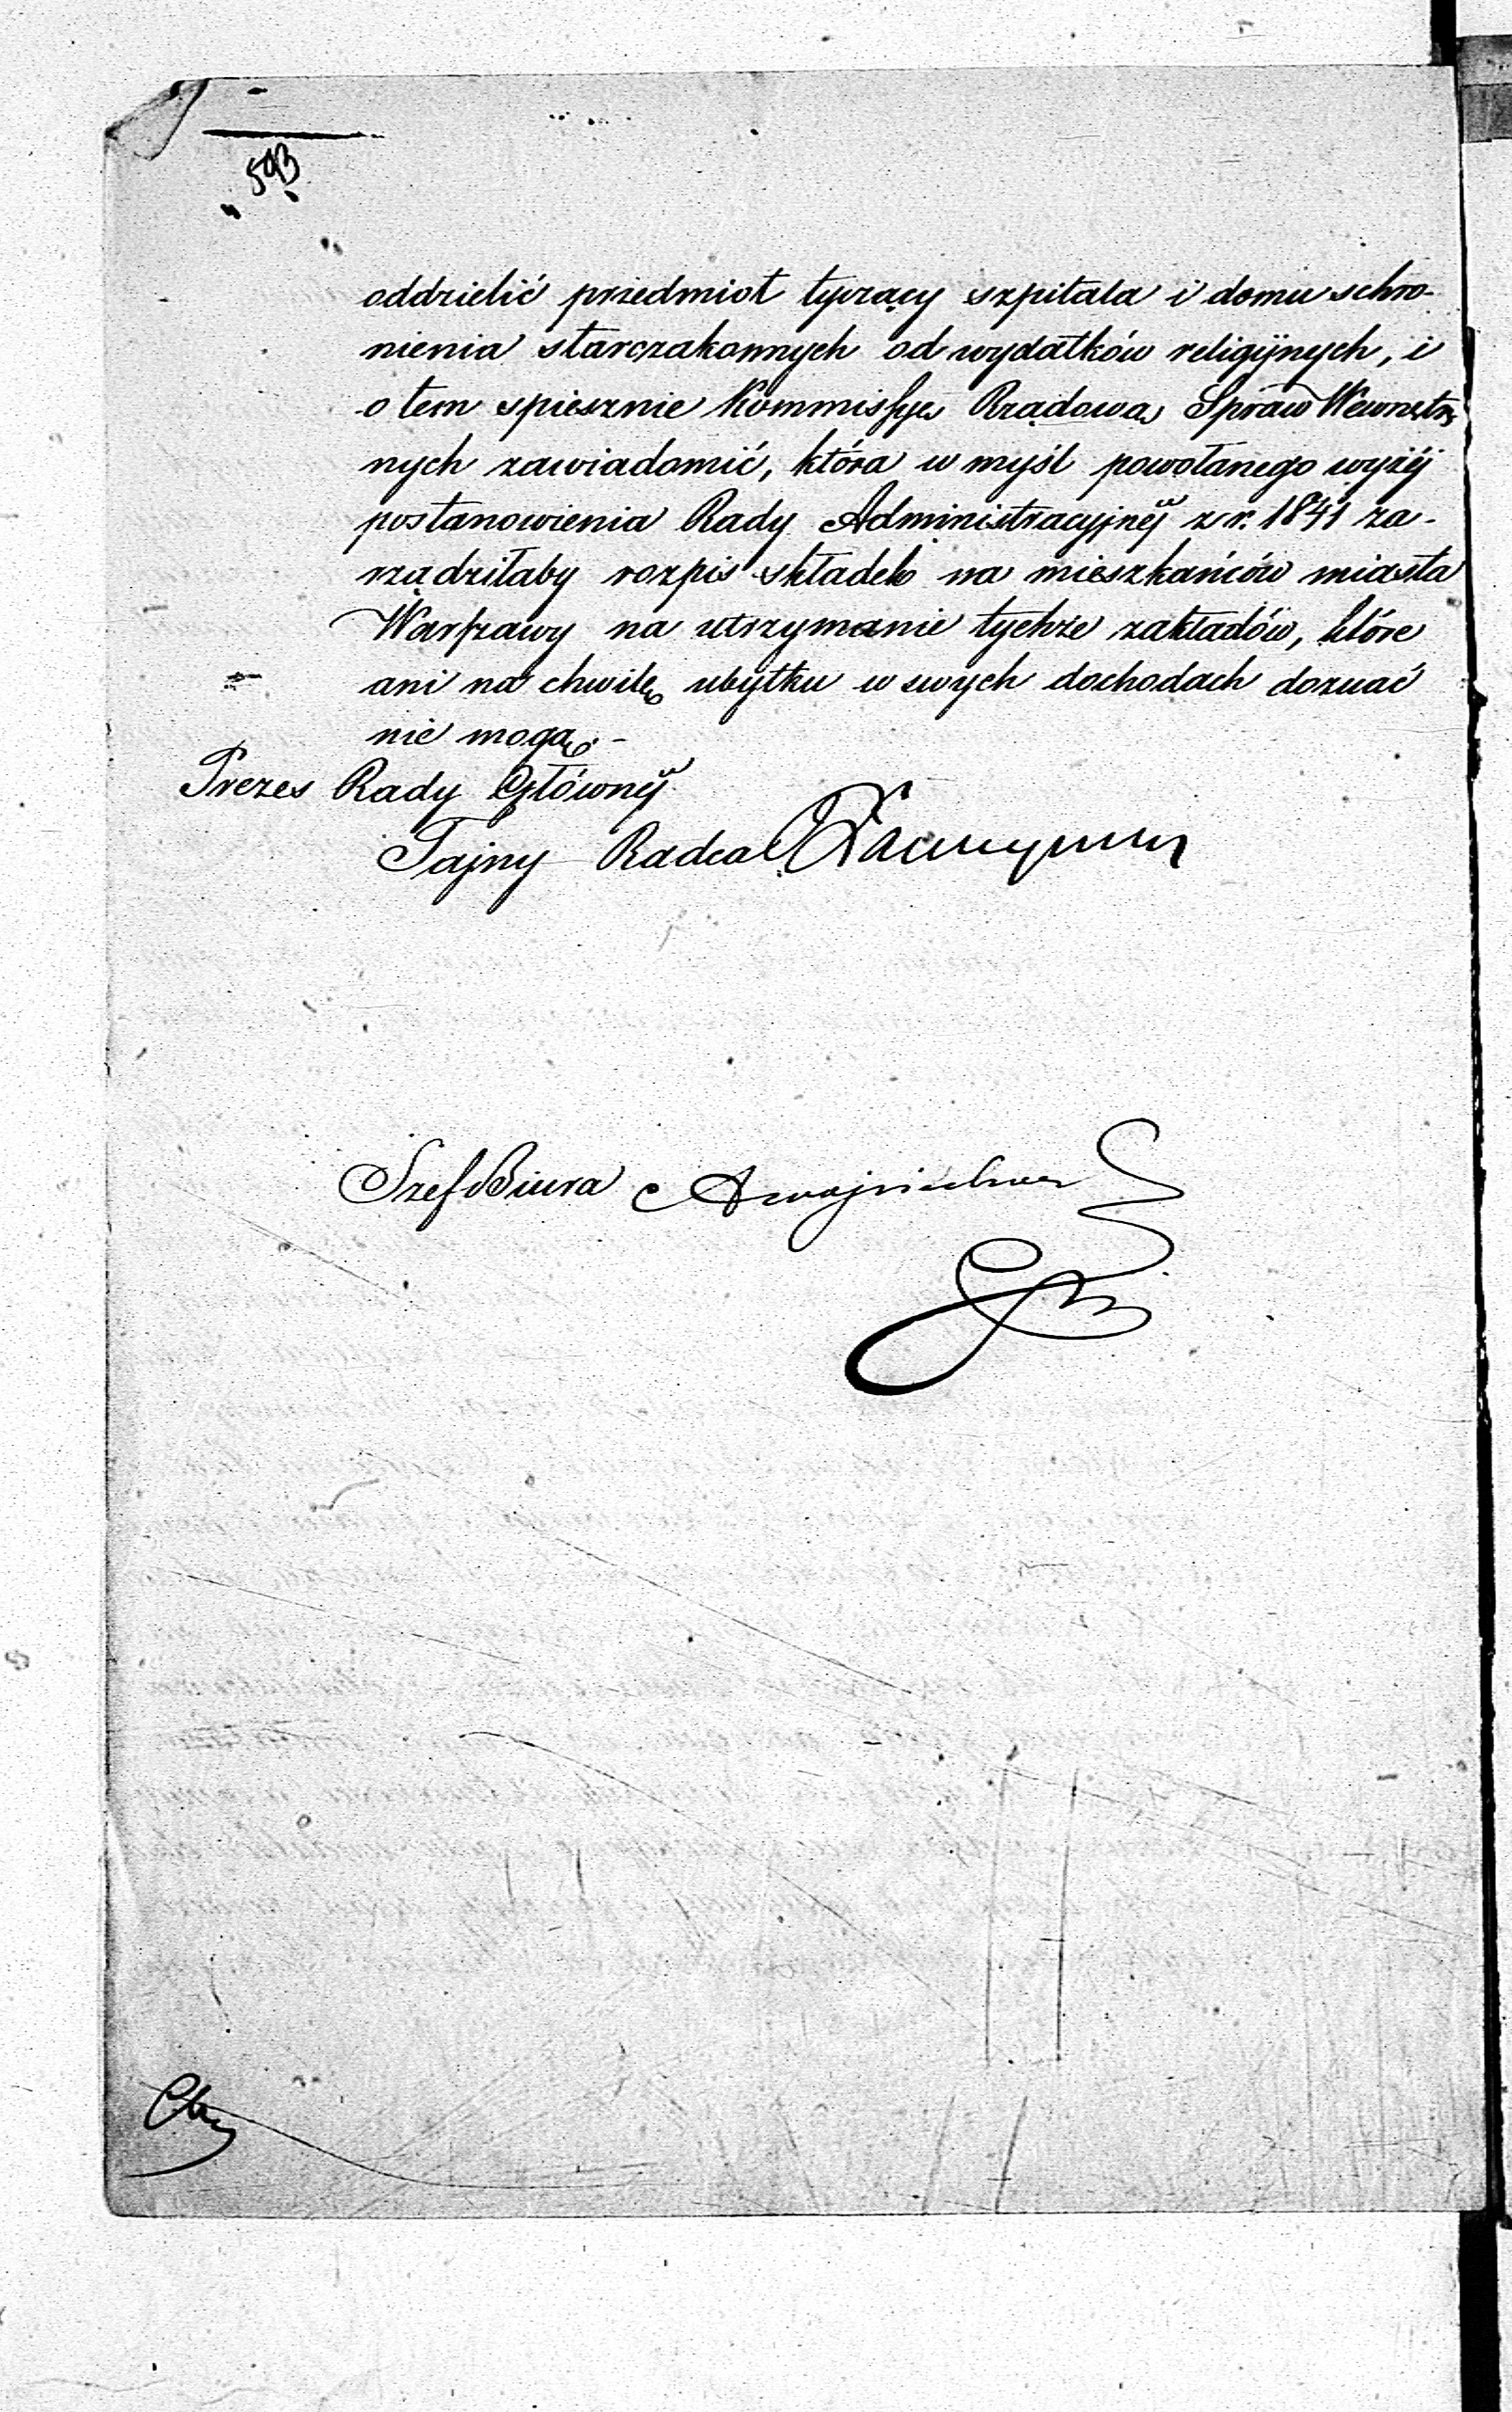 593
oddzielić przedmiot tyczący szpitala i domu schro-
nienia starozakonnych od wydatków religijnych, i
o tem spiesznie Kommissyę Rządową Spraw Wewnętrz
nych zawiadomić, która w myśl powołanego wyżéj
postanowienia Rady Administracyjnéj z r. 1841 za-
rządziłaby rozpis składek na mieszkańców miasta
Warszawy na utrzymanie tychże zakładów, które
ani na chwilę ubytku w swych dochodach doznać
nie mogą. -
Prezes Rady Głównéj
Tajny Radca
Szef Biura